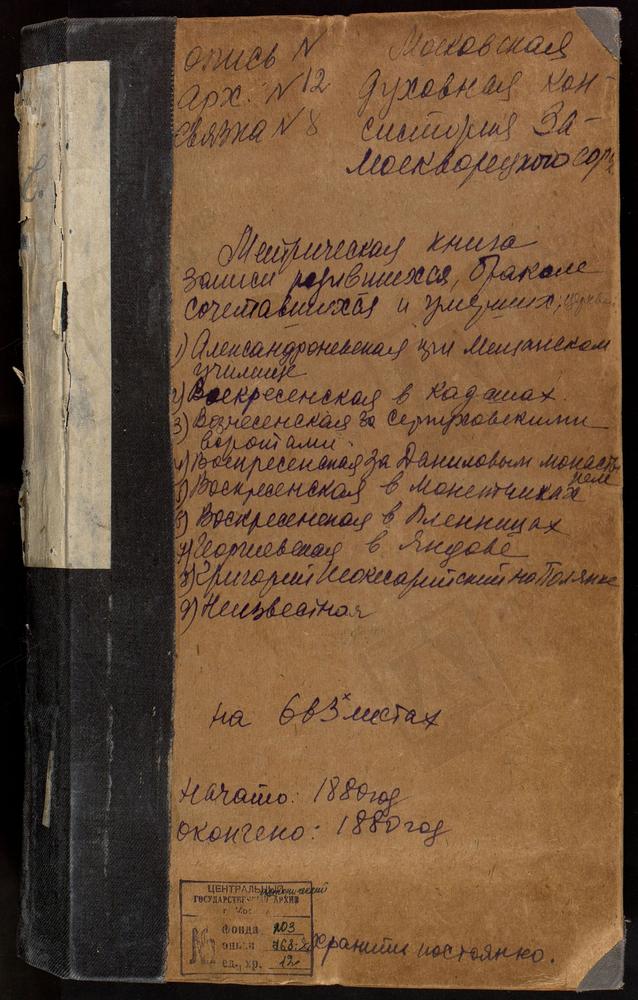 опись N
Арх. N 12
Связка N 8
Московская
духовная кон-
систория За-
москворецкого сор.
Метрическая книга
записи родившихся, браком
сочетавшихся и умерших,
1) Александроневская при Мещанском
училище
2) Воскресенская в Кадашах.
3) Вознесенская за Серпуховскими
воротами.
4) Воскресенская за Даниловым монасты
рем
5) Воскресенская в Монетчиках
6) Воскресенская в Пленницах
7) Георгиевская в Яндове
8) Григорий Неокесарийский на Полянке
9) Неизвестная
на 663х листах
начато: 1880 год
окончено: 1880 год
ЦЕНТРАЛЬНЫЙ
ГОСУДАРСТВЕННЫЙ АРХИВ
№
фонда 203
описи 763
ед. хр. 12
хранить постоянно.